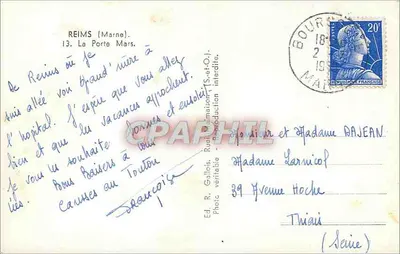 REIMS (Marne).
13. La Porte Mars.
De Reims où je
suis allée voir Grand'mère à
l'hopital. J'espère que vous allez
bien et que les vacances approchent.
Je vous les souhaite bonnes et ensoleil
lées. Bons Baisers à vous
Caresses au Toutou
Françoise
Ed. R. Gallois, Rueil-Malmaison (S.-et-O.).
Photo véritable - Reproduction interdite.
BOURG
18
2
19
MAR
20F
CPAPHIL
Monsieur et Madame DAJEAN
Madame Larnicol
39 Avenue Hoche
Thiais
(Seine)